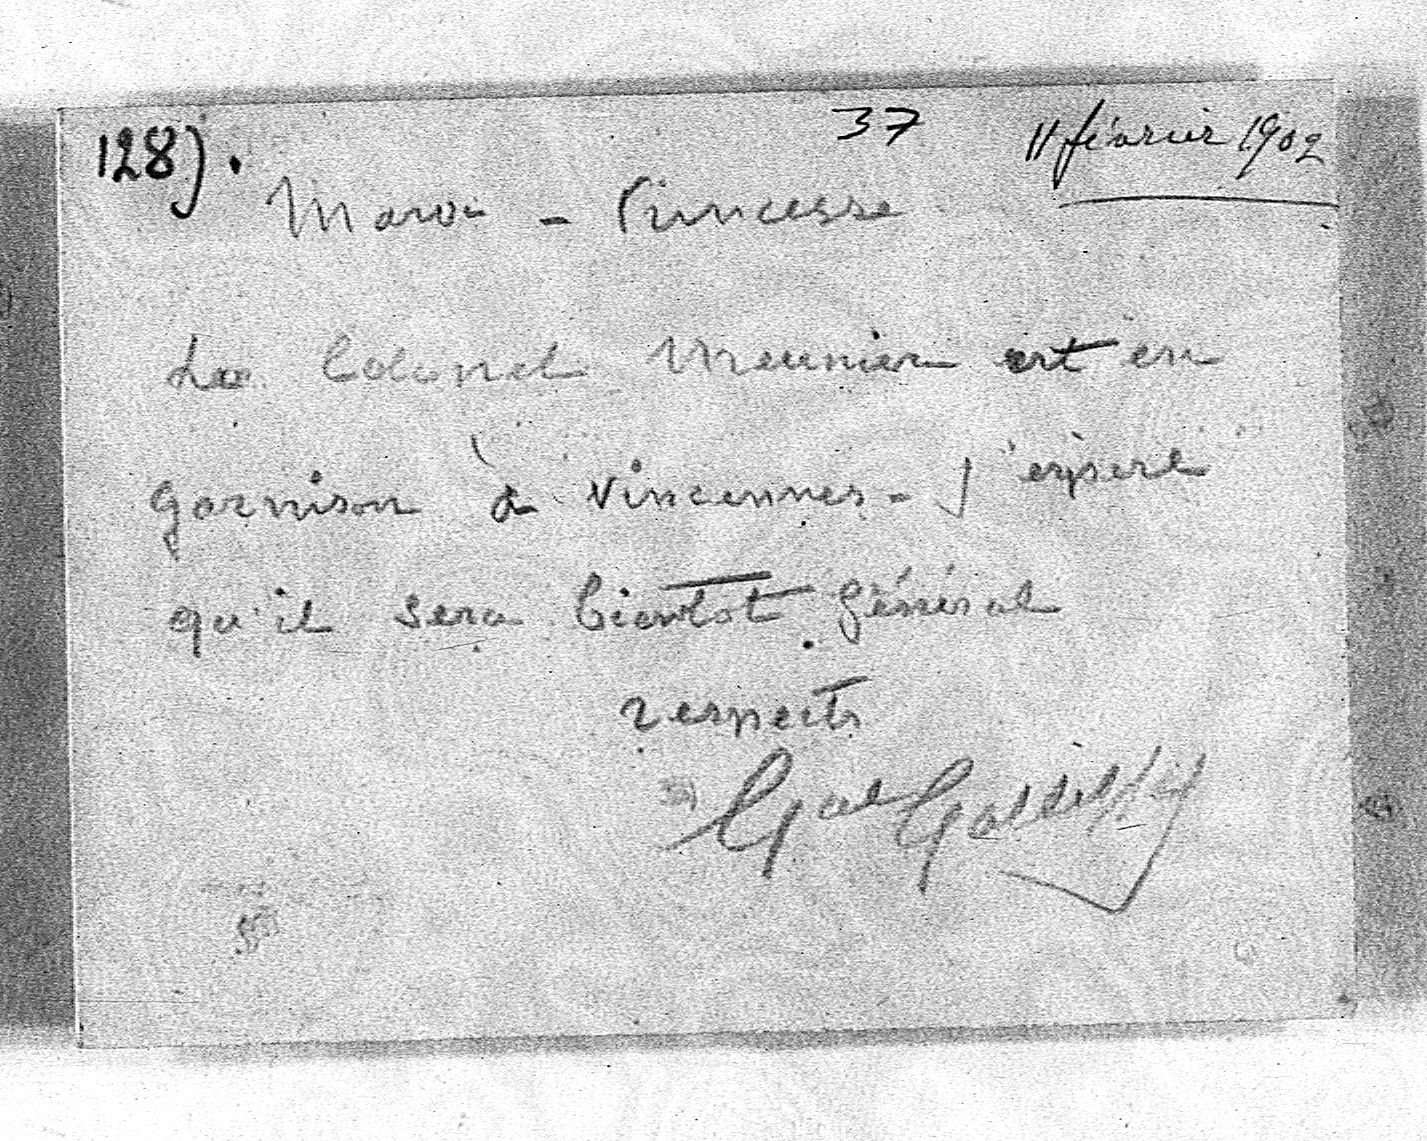 128).
37
11 février 1902
Maroc - Princesse
Le Colonel Meunier est en
garnison à Vincennes - J'espere
qu'il sera bientot Général
respects
Gal